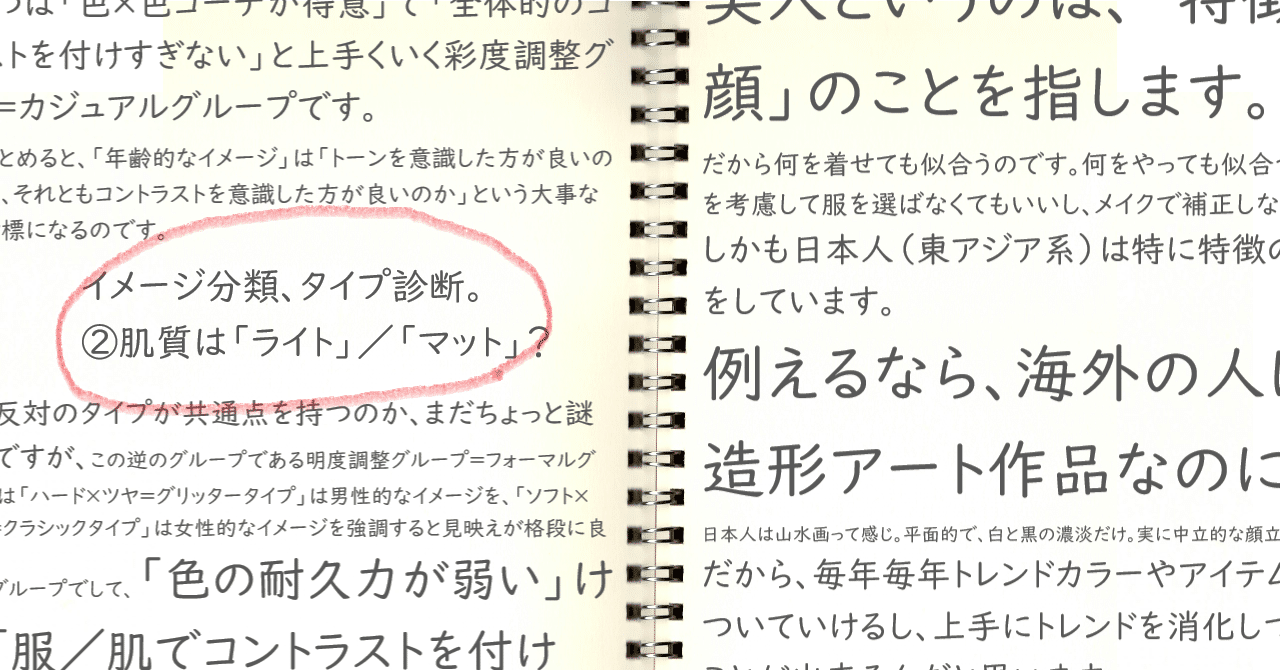 つは「色×色コーデが得意」で「全体的のコ
ストを付けすぎない」と上手くいく彩度調整グ
=カジュアルグループです。
とめると、「年齢的なイメージ」は「トーンを意識した方が良いの
、それともコントラストを意識した方が良いのか」という大事な
標になるのです。
イメージ分類、タイプ診断。
②肌質は「ライト」/「マット」?
反対のタイプが共通点を持つのか、まだちょっと謎
ですが、この逆のグループである明度調整グループ=フォーマルグ
は「ハード×ツヤ=グリッタータイプ」は男性的なイメージを、「ソフト×
=クラシックタイプ」は女性的なイメージを強調すると見映えが格段に良
グループでして、「色の耐久力が弱い」け
「服/肌でコントラストを付け
美人というのは、「特徴
顔」のことを指します。
だから何を着せても似合うのです。何をやっても似合う
を考慮して服を選ばなくてもいいし、メイクで補正しな
しかも日本人(東アジア系)は特に特徴の
をしています。
例えるなら、海外の人は
造形アート作品なのに
日本人は山水画って感じ。平面的で、白と黒の濃淡だけ。実に中立的な顔立
だから、毎年毎年トレンドカラーやアイテム
ついていけるし、上手にトレンドを消化して
ことが出来るんだと思います